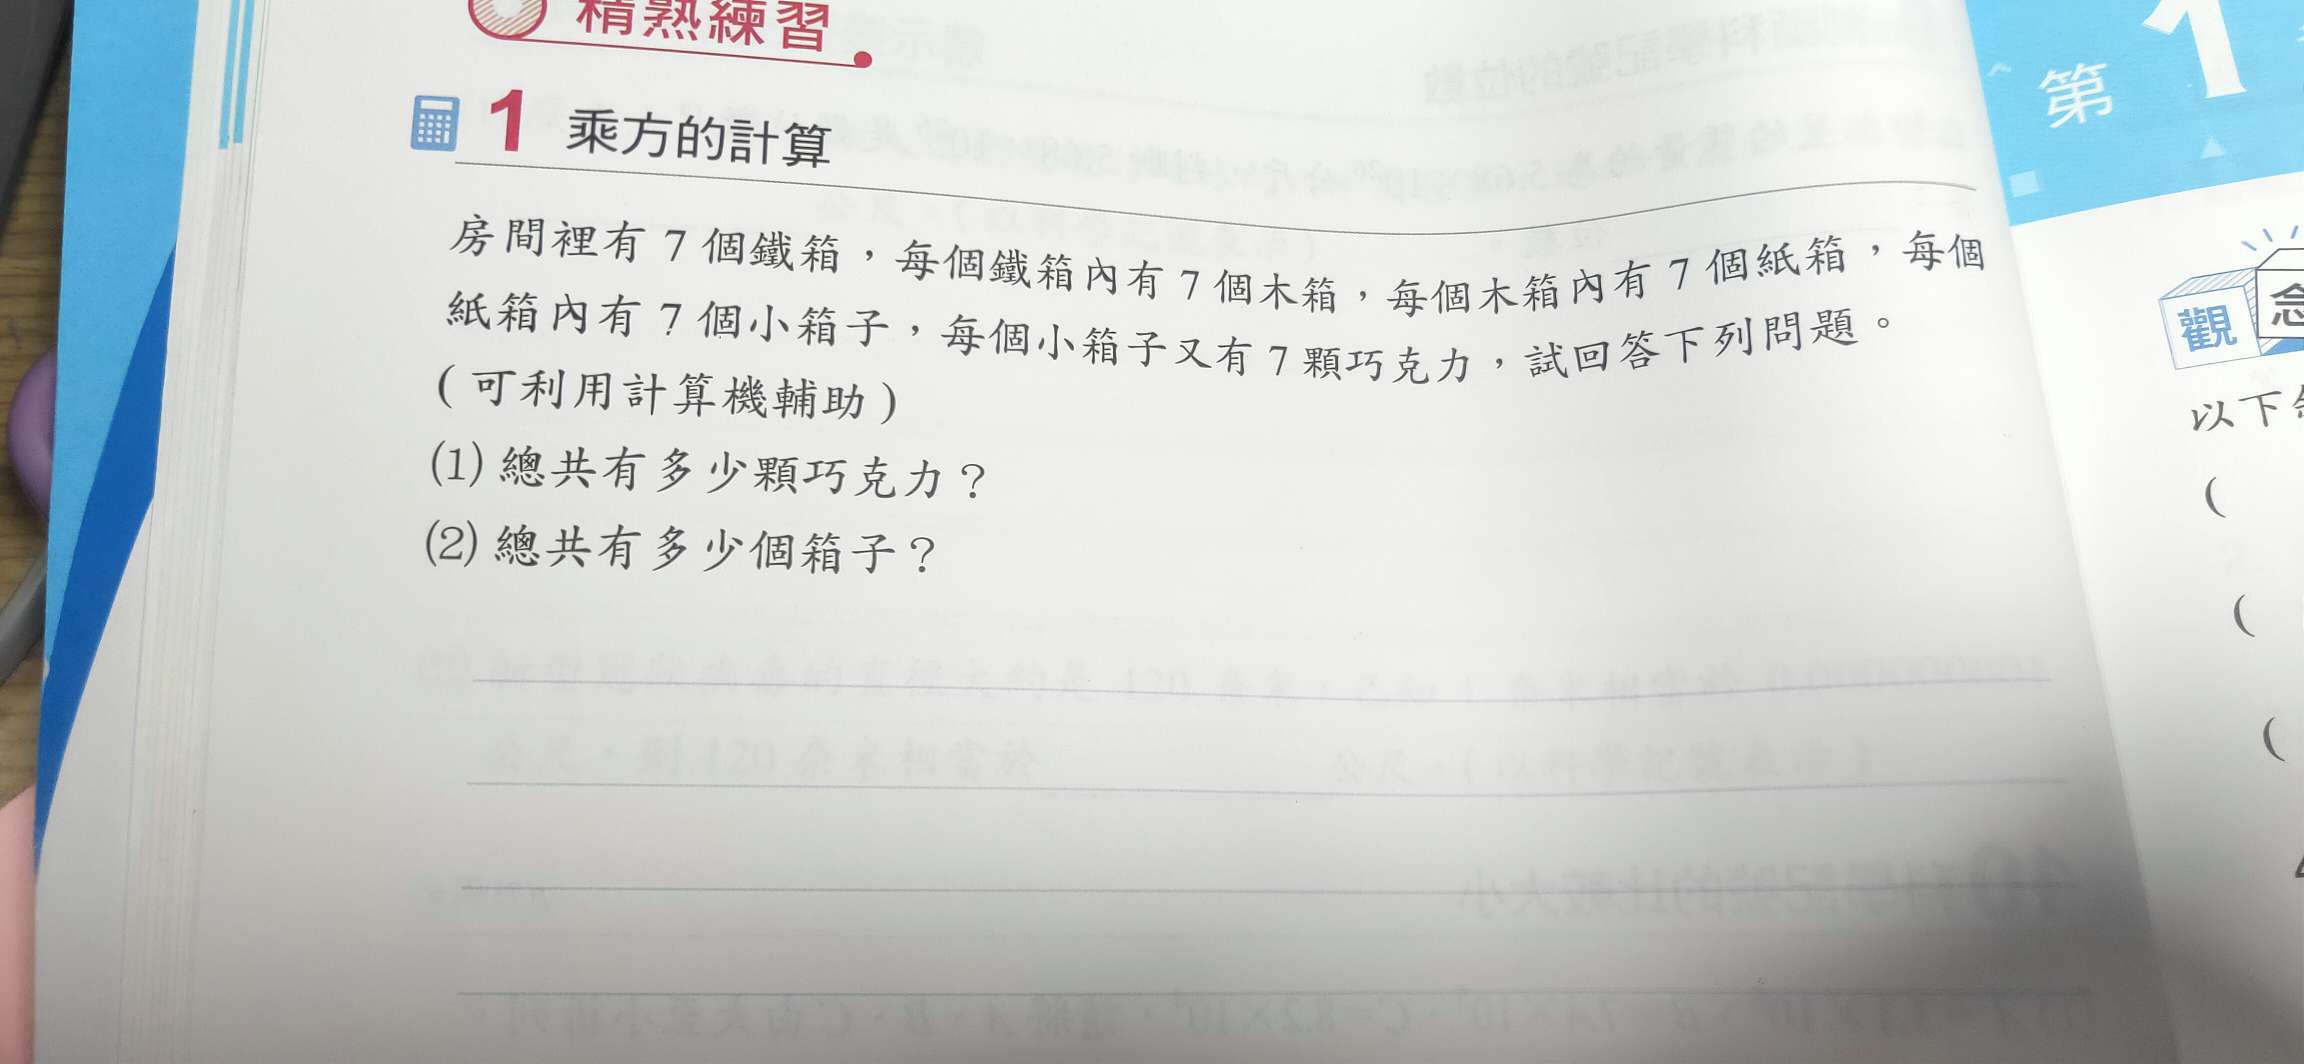 精熟練習
1 乘方的計算
房間裡有 7 個鐵箱，每個鐵箱內有 7 個木箱，每個木箱內有 7 個紙箱，每個
紙箱內有 7 個小箱子，每個小箱子又有 7 顆巧克力，試回答下列問題。
(可利用計算機輔助)
(1) 總共有多少顆巧克力？
(2) 總共有多少個箱子？
第 1
觀念
以下
(
(
(